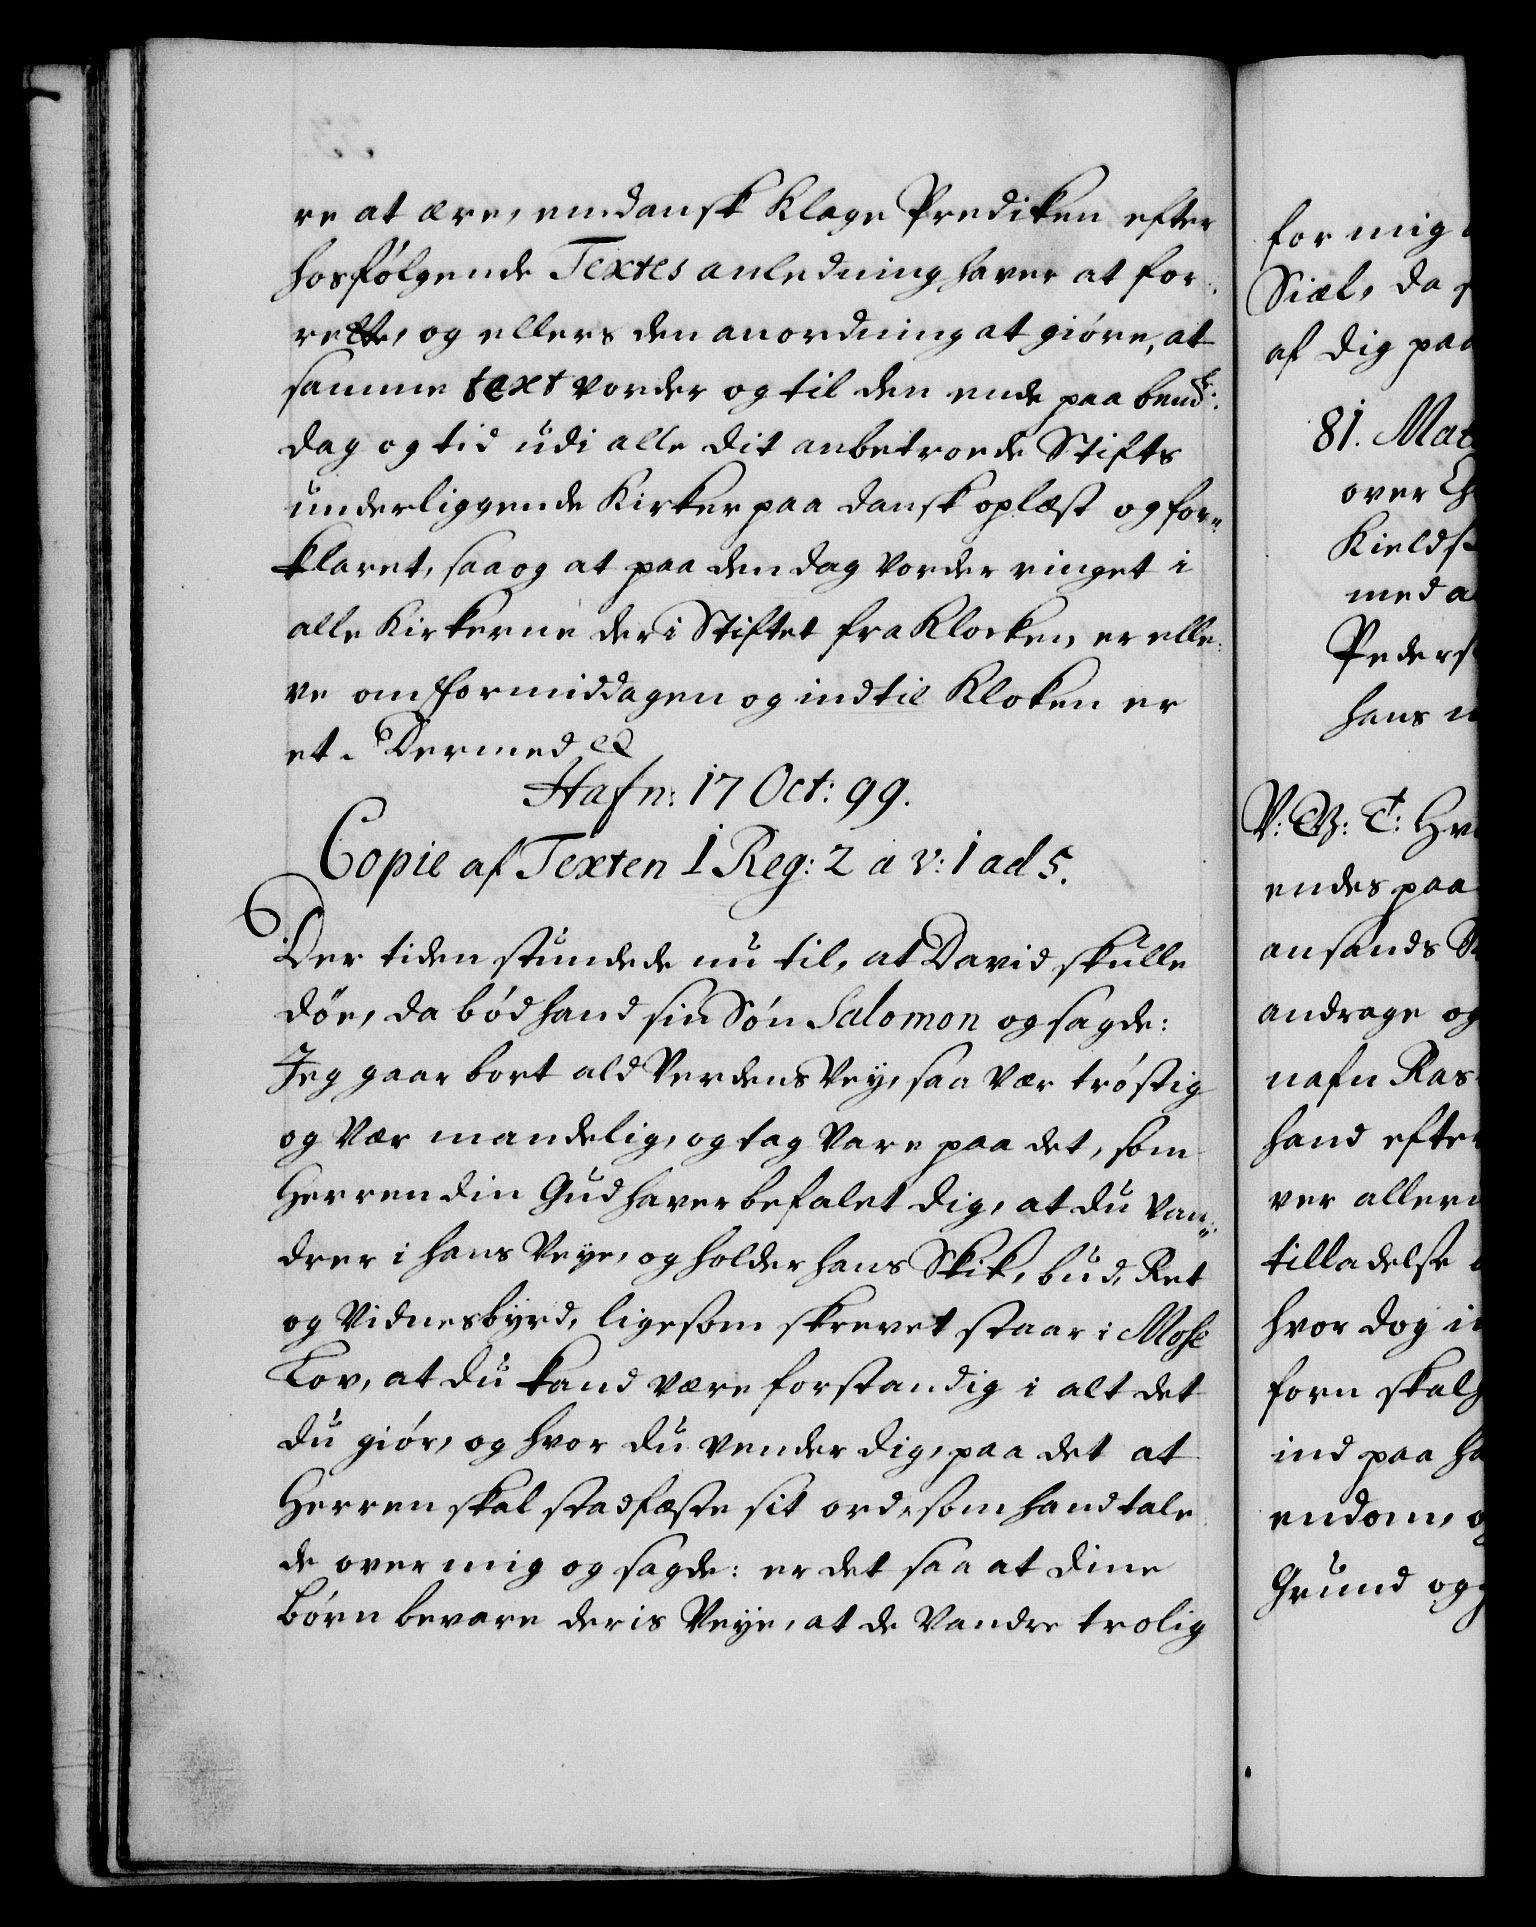 re at ære, een dansk Klage Prediken efter
hosfølgende Textes anledning haver at for:
rette, og ellers den anordning at giøre, at
samme text vorder og til den ende paa bemte:
dag og tid udi alle dit anbetroede Stifts
underliggende Kirker paa dansk oplæst og for„
klaret, saa og at paa den dag vorder ringet i
alle Kirkerne der i Stiftet fra Klocken er elle:
ve om formiddagen og indtil Kloken er
et. Dermed
Hafn: 17 Oct: 99.
Copie af Texten 1 Reg: 2 a v: 1 ad 5.
Der tiden stundede nu til, at David skulle
döe, da bød hand sin Søn Salomon og sagde:
Jeg gaar bort ald Verdens Vey, saa vær trøstig
og vær mandelig, og tag vare paa det, som
Herren din Gud haver befalet dig, at du van„
drer i hans Veye, og holder hans Skik, bud, Ret
og Vidnesbyrd, ligesom skrevet staar i Mose
Lov, at du kand være forstandig i alt det
du giør, og hvor du vender dig, paa det at
Herren skal stadfæste sit ord, som hand tale
de over mig og sagde: er det saa at dine
børn bevare deris Veye, at de vandre trolig
for mig
Siæl, da
af dig paa
81. Mat
over
Kields
med a
Peders
hans
V: G: T: Hv
endes paa
ansands
andrage og
nafn Ras
hand efter
ver allern
tilladelse
hvor dog i
forn skal
ind paa ha
endom, o
Grund og